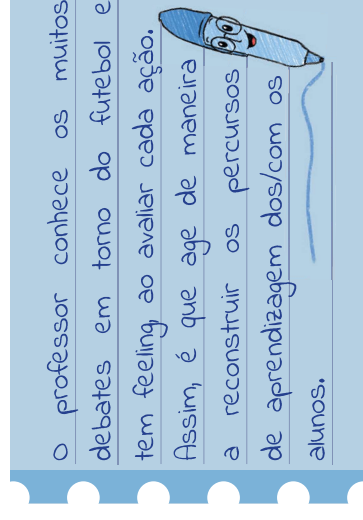 O professor conhece os muitos
debates em torno do futebol e
tem feeling, ao avaliar cada ação.
Assim, é que age de maneira
a reconstruir os percursos
de aprendizagem dos/com os
alunos.